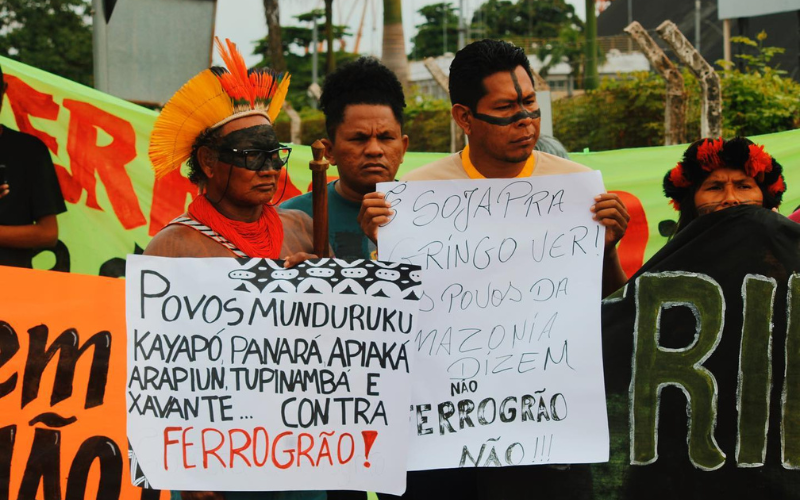 POVOS MUNDURUKU
KAYAPÓ, PANARÁ, APIAKÁ
ARAPIUN, TUPINAMBÁ E
XAVANTE... CONTRA
FERROGRÃO!
É SOJA PRA
GRINGO VER!
OS POVOS DA
AMAZONIA
DIZEM
NÃO
FERROGRÃO
NÃO!!!
em
NÃO
RI